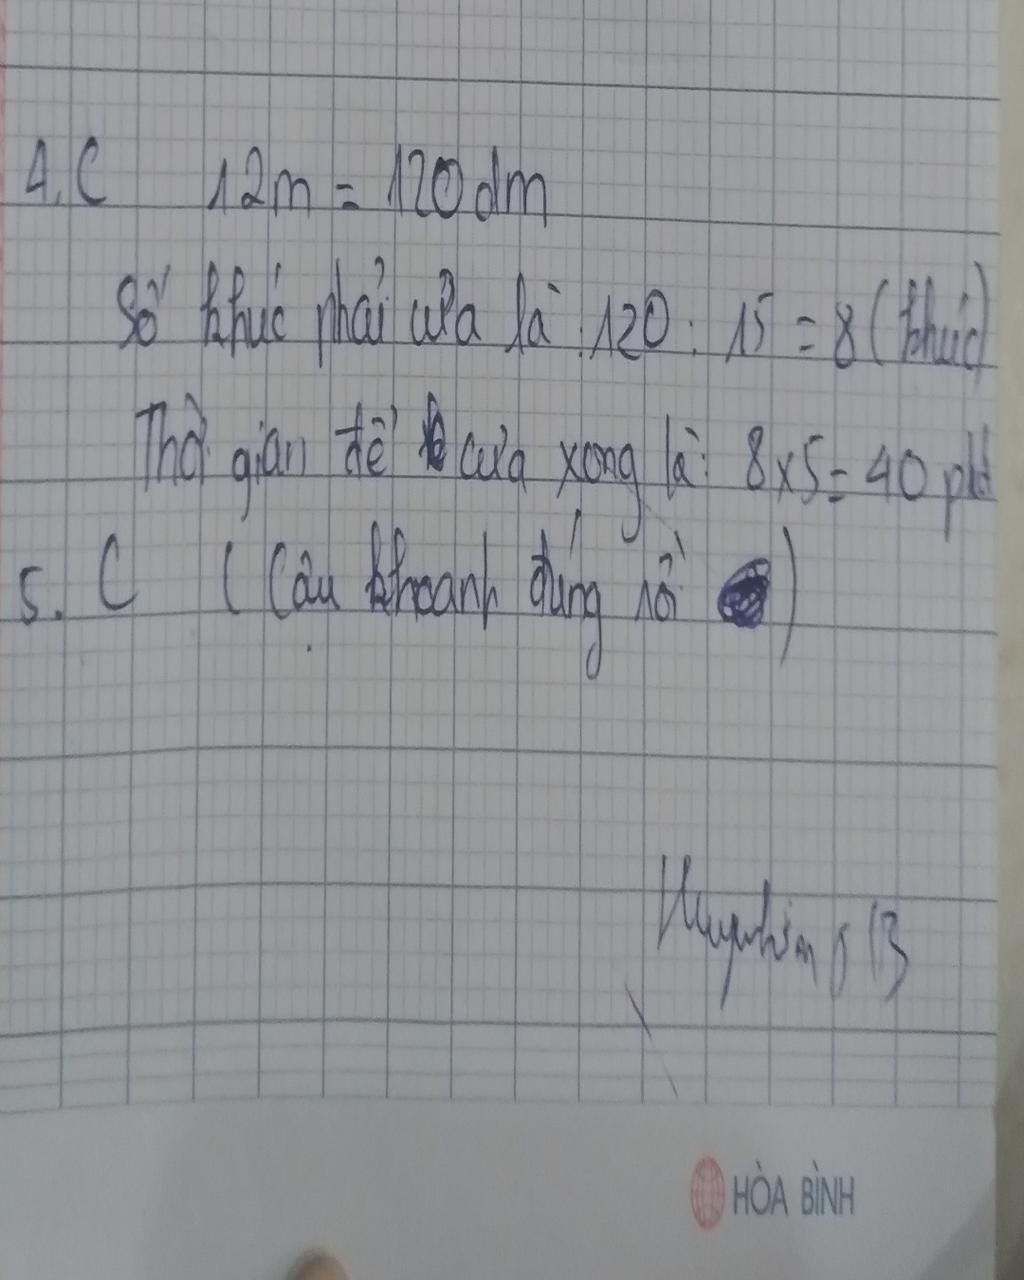 4. C 12m = 120 dm
Số khúc phải cưa là : 120 : 15 = 8 (khúc)
Thời gian để cưa xong là: 8 x 5 = 40 phút
5. C ( Câu khoanh đúng rồi )
HÒA BÌNH